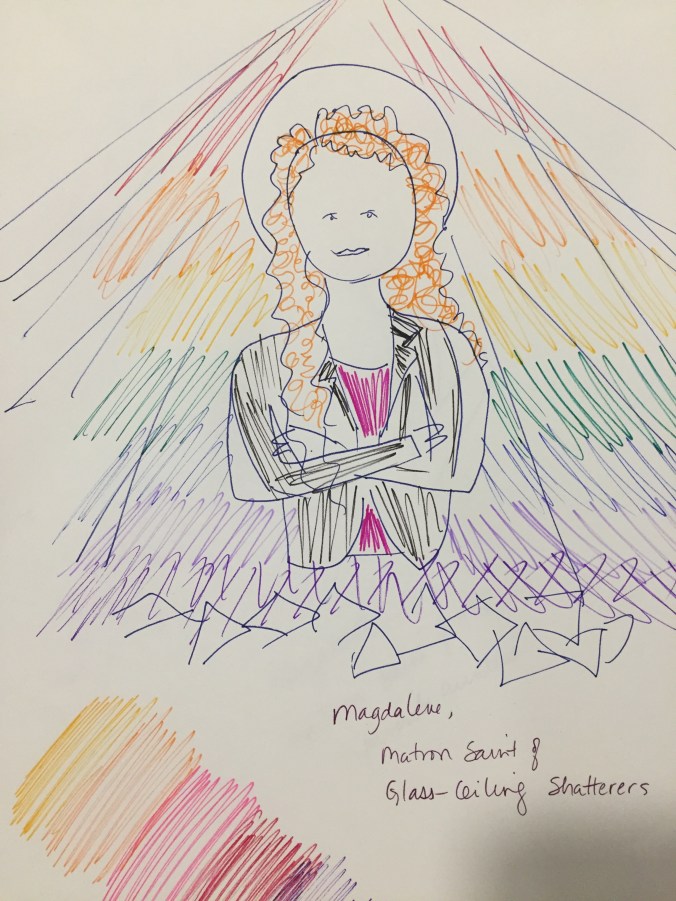 Magdalene,
Matron Saint of
Glass-Ceiling Shatterers